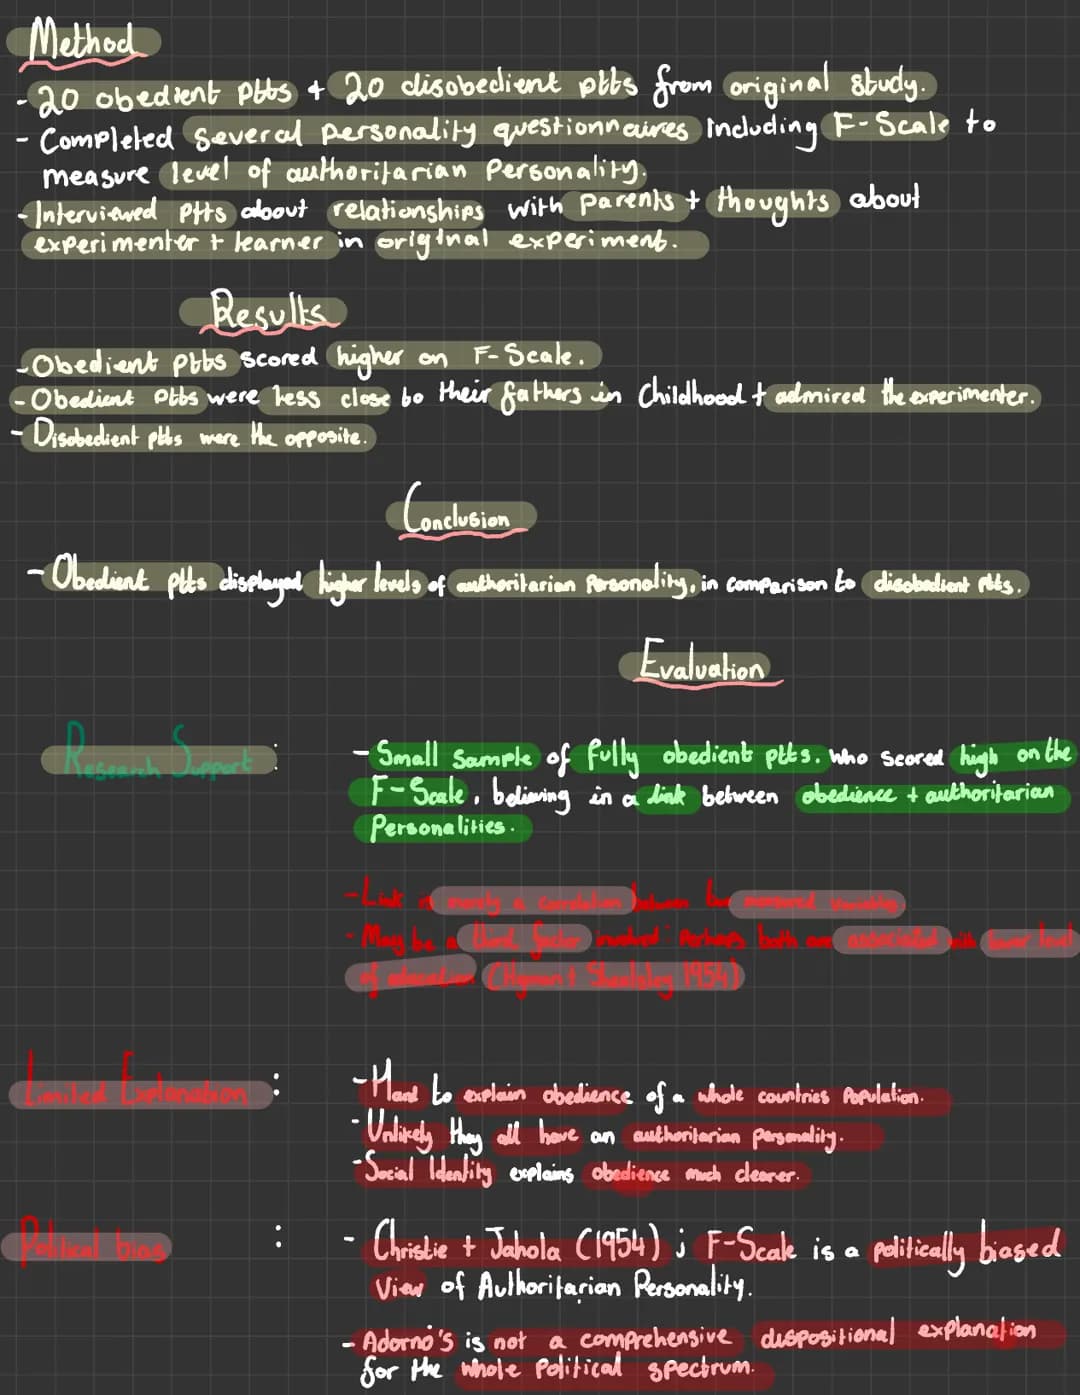 Method
- 20 obedient ptts + 20 disobedient ptts from original study.
- Completed several personality questionnaires including F-Scale to
measure level of authoritarian Personality.
- Interviewed ptts about relationships with parents + thoughts about
experimenter + learner in original experiment.
Results
- Obedient ptts scored higher on F-Scale.
- Obedient ptts were less close to their fathers in Childhood + admired the experimenter.
- Disobedient ptts were the opposite.
Conclusion
- Obedient ptts displayed higher levels of authoritarian Personality, in comparison to disobedient ptts.
Evaluation
Research Support :
- Small Sample of fully obedient ptts. who scored high on the
F-Scale, believing in a link between obedience + authoritarian
Personalities.
- Link is merely a correlation between two measured variables
- May be a third factor involved. Perhaps both are associated with lower level
of education (Hyman + Sheatsley 1954)
Limited Explanation :
- Hard to explain obedience of a whole countries Population.
- Unlikely they all have an authoritarian personality.
- Social Identity explains obedience much clearer.
Political bias :
- Christie + Jahola (1954) ; F-Scale is a politically biased
View of Authoritarian Personality.
- Adorno's is not a comprehensive dispositional explanation
for the whole Political spectrum.